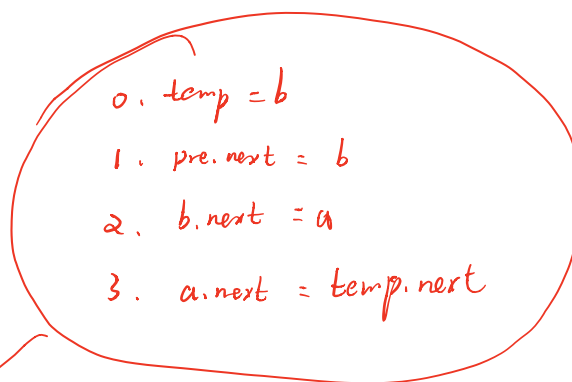 0. temp = b
1. pre.next = b
2. b.next = a
3. a.next = temp.next